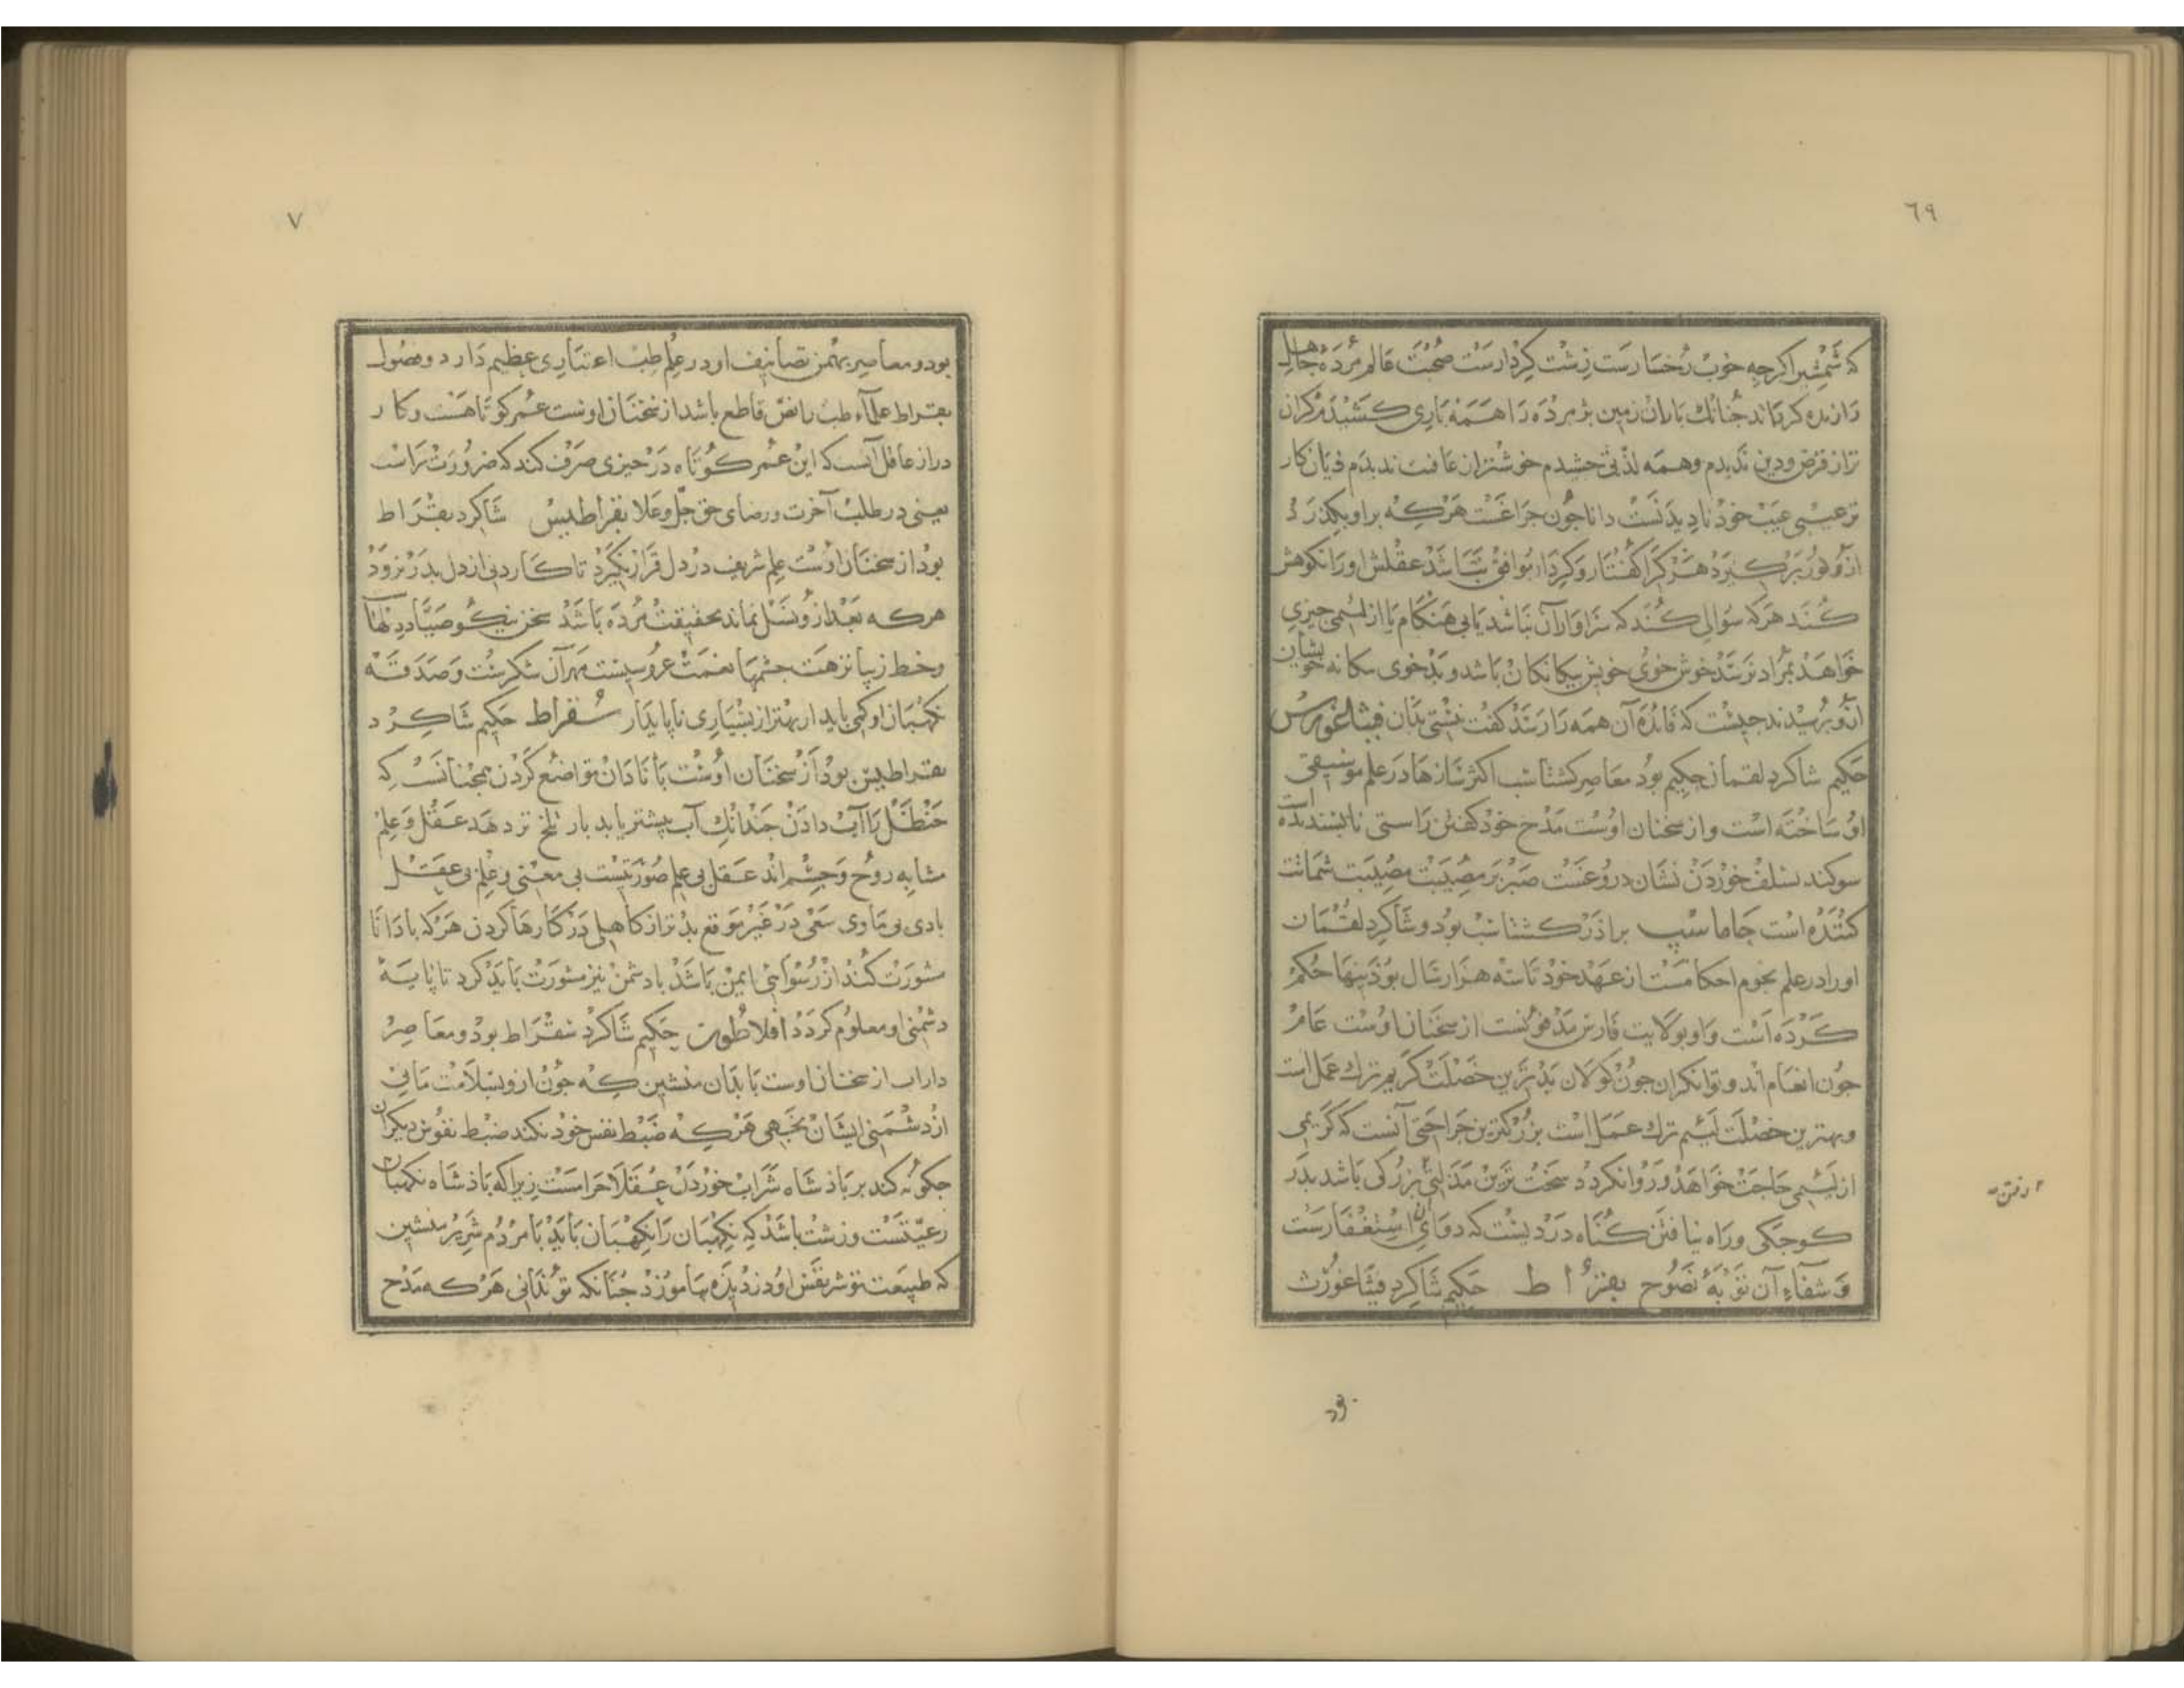 ٦٩
که شمشیر اکرجه خوب رخسارست زشت کردارست صحبت عالم مرده جاهل
را زنده کرداند جنانك باران زمین بژمرده را همه باری کشیدم کران
تر از قرض ودین ندیدم وهمه لذتی جشیدم خوشتر از عافیت ندیدم زیان کار
تر عیبی عیب خود نادیدنست دانا جون جراغست هرکه بر او بکذرد
ازو نور برکیرد هرکرا کفتار و کردار موافق نباشد عقلش اورا نکوهش
کند هرکه سوالی کند که سزاوار آن نباشد یا بی هنکام یا از لئیمی جیزی
خواهد بمراد نرسد خوش خوی خویش بیکانکان باشد و بد خوی بیکانه خویشان
ازو برسیدند جیست که فایده آن همه را رسد کفت نیستی بدان فیثاغورس
حکیم شاکرد لقمان حکیم بود معاصر کشتاسب اکثر سازها در علم موسیقی
او ساخته است و از سخنان اوست مدح خود کفتن راستی نابسندیده است
سوکند بسلف خوردن نشان دروغست صبر بر مصیبت مصیبت شماتت
کننده است جاماسب براذر کشتاسب بود و شاکرد لقمان
اورا در علم نجوم احکامست از عهد خود تا سه هزار سال بوذنیها حکم
کرده است و او بولایت فارس مدفونست از سخنان اوست عامر
جون انعام اند و توانکران جون کولان بدترین خصلت کریم ترك عمل است
و بهترین خصلت لئیم ترك عمل است بزرکترین جراحتی آنست که کریمی
از لئیمی حاجت خواهد و روا نکردد سخت ترین مذلتی بزرکی باشد بدر
کوجکی و راه نیافتن کناه دردیست که دوای آن استغفارست
و شفاء آن توبه نصوح بقراط حکیم شاکرد فیثاغورث
رفتن
بود
٧
بود و معاصر بهمن تصانیف او در علم طب اعتباری عظیم دارد و فصول
بقراط علماء طب را نص قاطع باشد از سخنان اوست عمر کوتاهست و کار
دراز عاقل آنست که این عمر کوتاه در جیزی صرف کند که ضرورت تراست
یعنی در طلب آخرت و رضای حق جل و علا بقراطیس شاکرد بقراط
بود از سخنان اوست علم شریف در دل قرار نکیرد تا کار دنی از دل بدر نرود
هرکه بعد ازو نسل نماند بحقیقت مرده باشد سخن نیکو صیاد دلهاآ
وخط زیبا نزهت جشمها نعمت عروسیست مهر آن شکرست و صدقه
نکهبان او کمی بایدار بهتر از بسیاری نابایدار سقراط حکیم شاکرد
بقراطیس بود از سخنان اوست با نادان تواضع کردن همجنانست که
حنظل را آب دادن جندانك آب بیشتر یابد بار تلخ تر دهد عقل و علم
مشابه روح و جسم اند عقل بی علم صورتیست بی معنی و علم بی عقل
بادی بی ماوی سعی در غیر موقع بدتر از کاهلی در کارها کردن هرکه با دانا
مشورت کند از رسوائی ایمن باشد با دشمن نیز مشورت باید کرد تا بایه
دشمنی او معلوم کردد افلاطون حکیم شاکرد سقراط بود و معاصر
داراب از سخنان اوست با بدان منشین که جون ازو بسلامت مانی
از دشمنی ایشان نجهی هرکه ضبط نفس خود نکند ضبط نفوس دیکران
جکونه کند بر باذشاه شراب خوردن عقلا حرامست زیراکه باذشاه نکهبان
رعیتست و زشت باشد که نکهبان را نکهبان باید با مردم شریر منشین
که طبیعت تو شر نفس او دزدیده بیاموزد جنانکه تو ندانی هرکه مدح